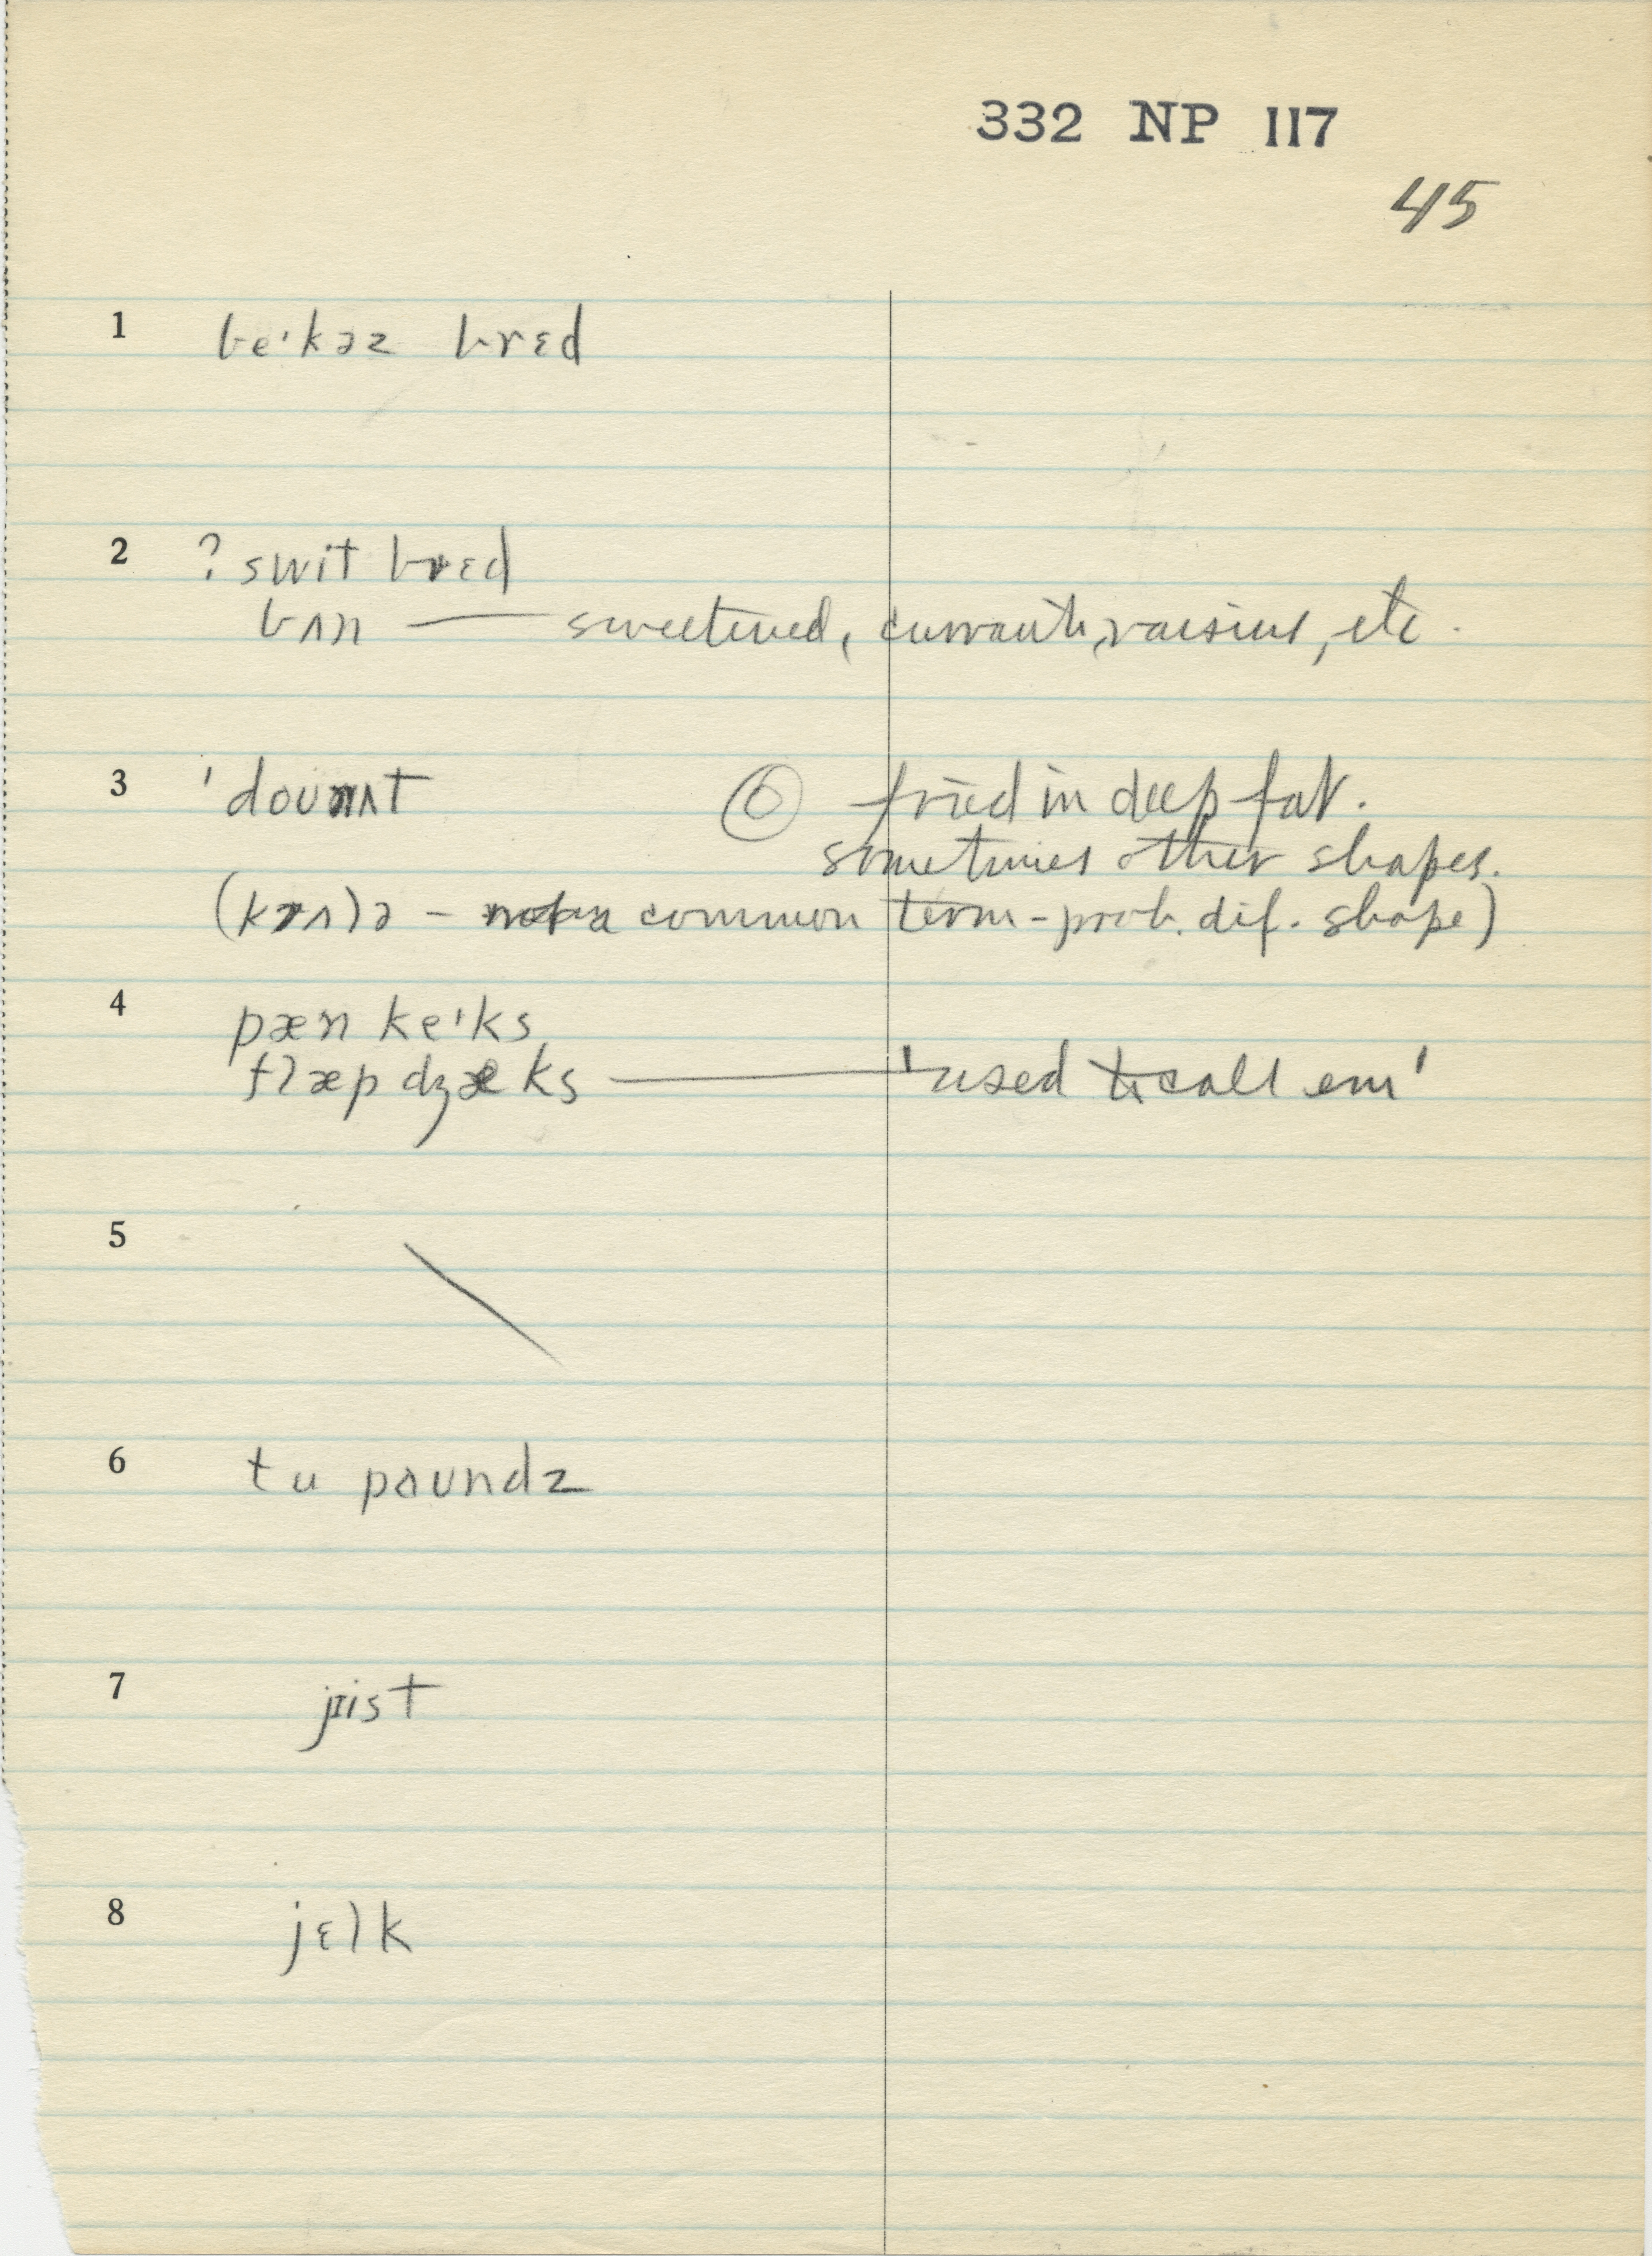 332 NP 117
45
1 beˈkəz brɛd
2 ? swit brɛd
bʌn — sweetened, currants, raisins, etc.
3 ˈdounʌt fried in deep fat.
sometimes other shapes.
(krʌlə - common term - prob. dif. shape)
4 pæn keˈks
flæp dʒæks — 'used to call em'
5
6 tu paundz
7 jist
8 jɛlk